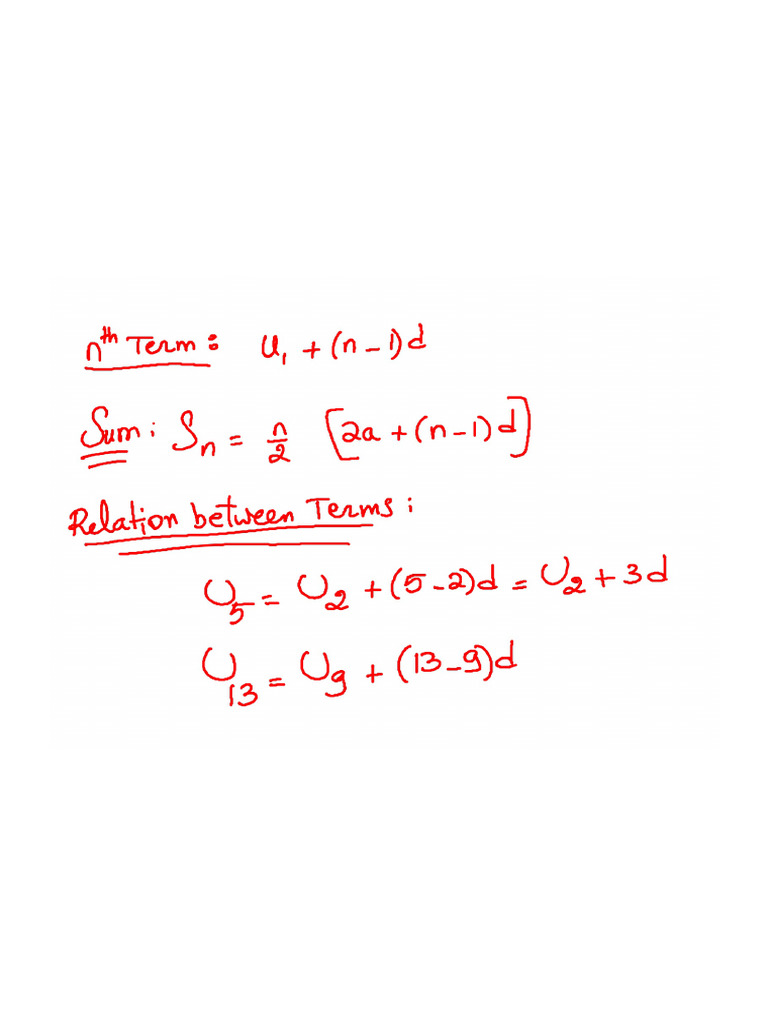 nth Term: U₁ + (n - 1)d
Sum: Sₙ = n/2 [2a + (n-1)d]
Relation between Terms:
U₅ = U₂ + (5-2)d = U₂ + 3d
U₁₃ = U₉ + (13-9)d